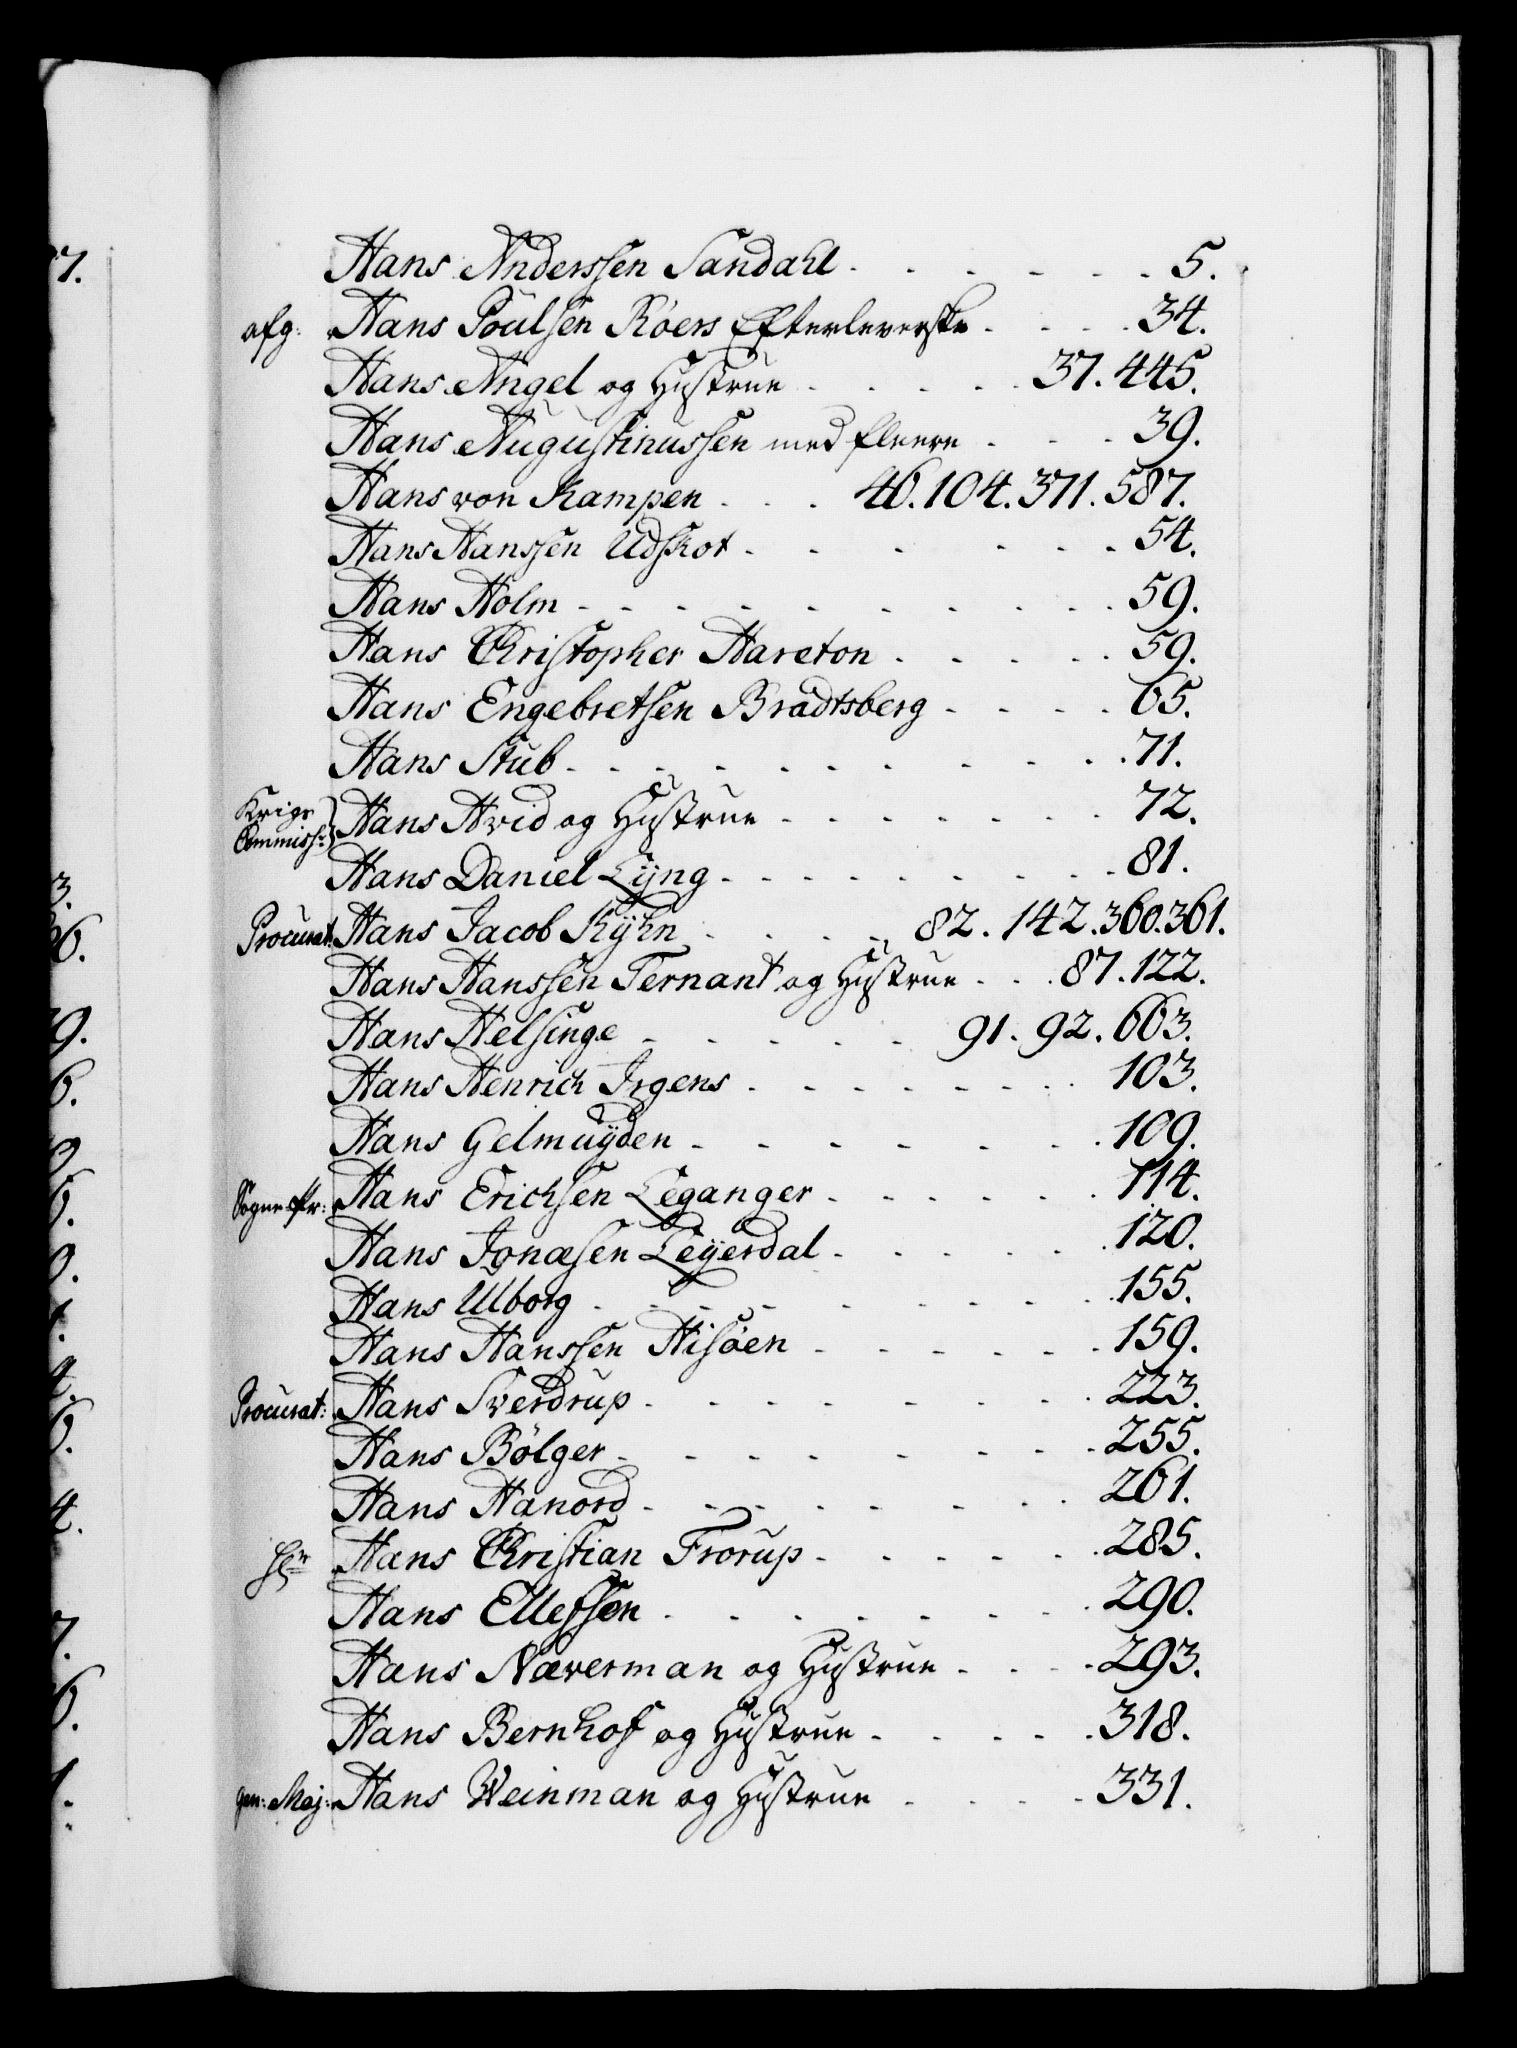 Hans Anderssen Sandahl . . . . . . 5.
afg: Hans Poulsen Röers Efterleverske . . . . 34.
Hans Angel og Hustrue . . . . . 37. 445.
Hans Augustinussen med fleere . . . 39.
Hans von Kampen . . . 46. 104. 371. 587.
Hans Hanssen Udskot . . . . . . . 54.
Hans Holm . . . . . . . . . . 59.
Hans Christopher Hareton . . . . . 59.
Hans Engebretsen Bradtsberg . . . . 65.
Hans Stub . . . . . . . . . . 71.
Krigs Commiss: Hans Hvid og Hustrue . . . . . . . 72.
Hans Daniel Lyng . . . . . . . . . 81.
Procurat: Hans Jacob Kÿhn . . . . 82. 142. 360. 361.
Hans Hanssen Ternant og Hustrue . . . 87. 122.
Hans Helsinge . . . . . 91. 92. 603.
Hans Henrich Irgens . . . . . . . . 103.
Hans Gelmuÿden . . . . . . . 109.
Sogne Pr: Hans Erichsen Leganger . . . . . . 114.
Hans Jonæsen Leÿerdal . . . . . . 120.
Hans Ulborg . . . . . . . . . 155.
Hans Hanssen Hisöen . . . . . . 159.
Procurat: Hans Sverdrup . . . . . . . . 223.
Hans Bölger . . . . . . . . 255.
Hans Hanord . . . . . . . . 261.
Hr Hans Christian Frorup . . . . . . 285.
Hans Ellefsen . . . . . . . . 290.
Hans Næverman og Hustrue . . . . 293.
Hans Bernhoft og Hustrue . . . . . 318.
gen: Maj: Hans Weinman og Hustrue . . . . 331.